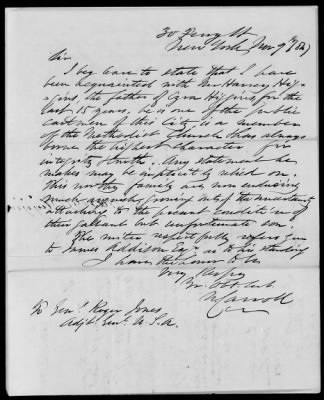 30 Perry St
New York Nov 9th /52
Sir
I beg leave to state that I have
been acquainted with Mr Harvey Hig-
gins, the father of Ezra Higgins for the
last 15 years, he is one of the public
cartmen of this City, is a member
of the Methodist Church & has always
borne the highest character for
integrity & truth. Any statement he
makes may be implicitly relied on.
This worthy family are now enduring
much anguish growing out of the uncertainty
attaching to the present condition of
their gallant but unfortunate son.
The writer respectfully refers you
to James Addison as to his standing
I have the honor to be
Very Respy
Yr Obt Sert
N Carroll
To Genl Roger Jones
Adjt Genl U.S.A.